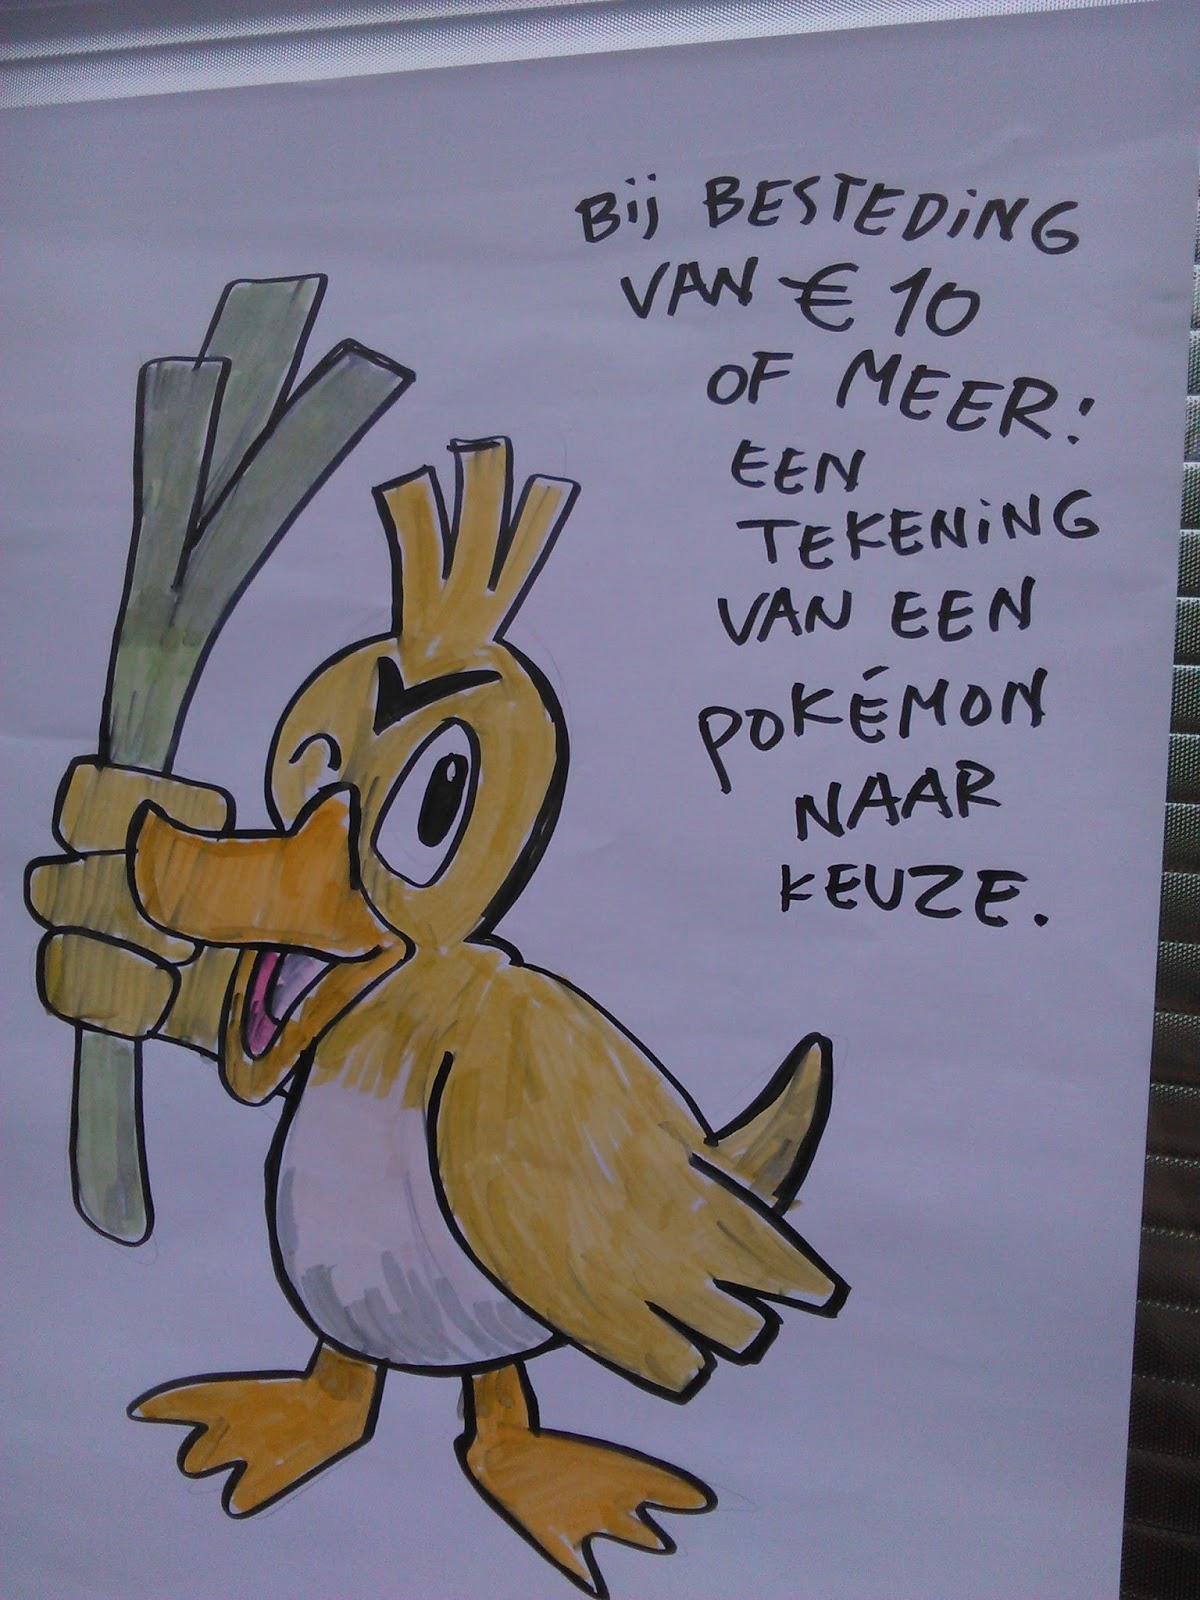 Bij BESTEDING
VAN € 10
OF MEER:
EEN
TEKENING
VAN EEN
POKÉMON
NAAR
KEUZE.